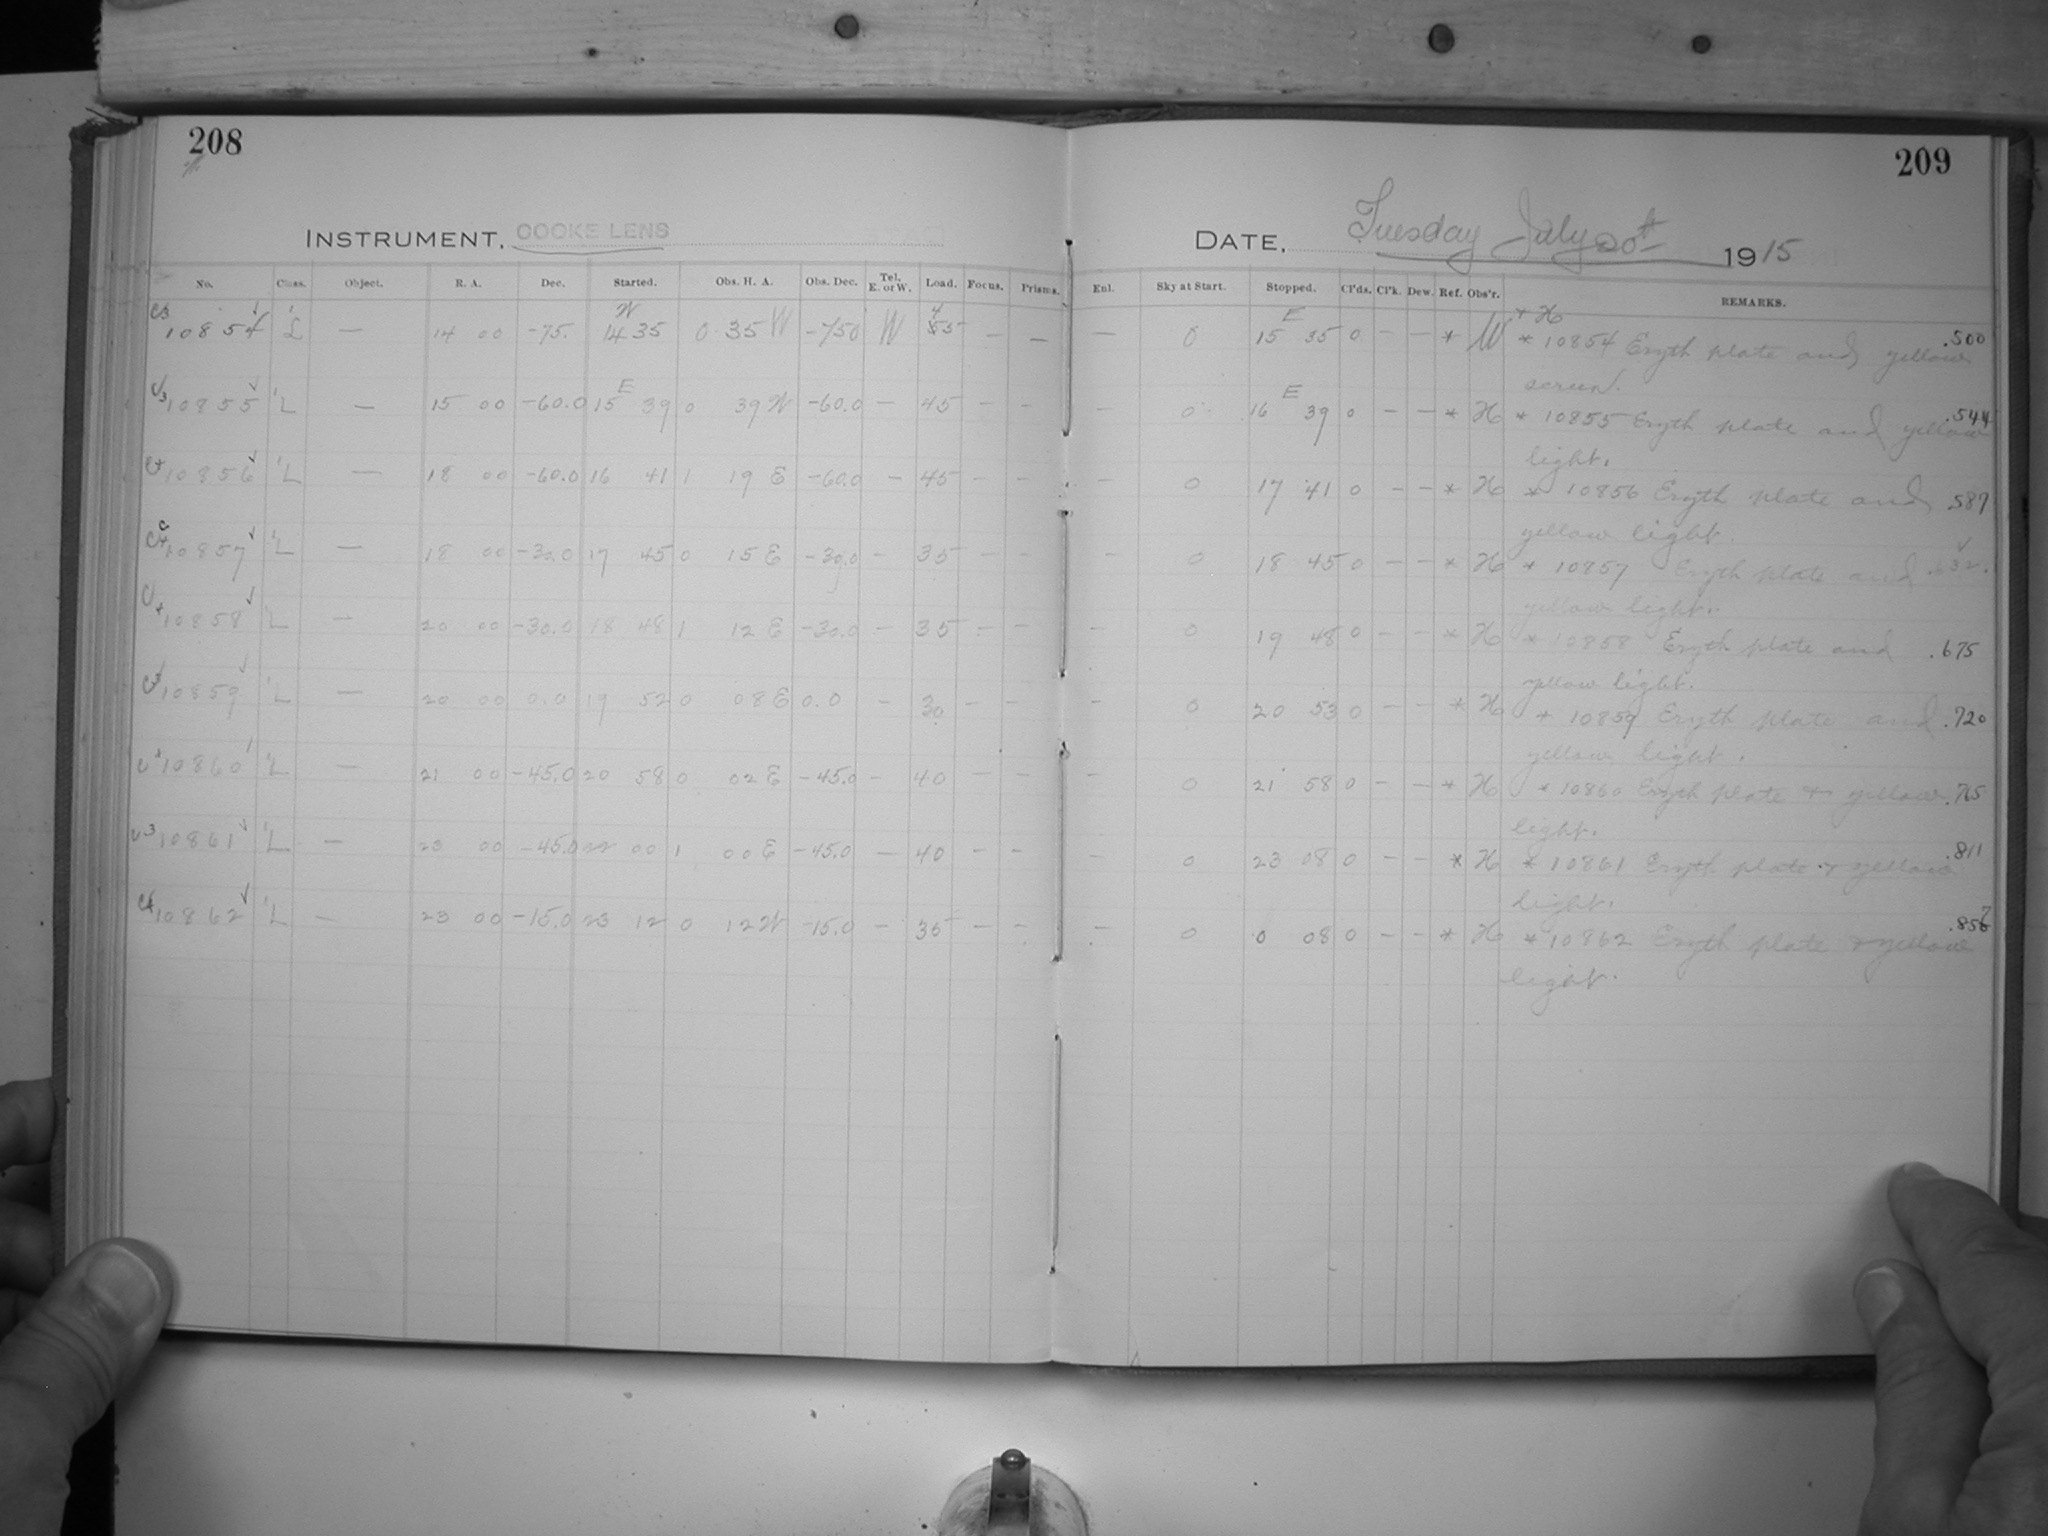 208
209
INSTRUMENT, COOKE LENS
DATE, Tuesday July 20th 1915
No. Class. Object. R. A. Dec. Started. Obs. H. A. Obs. Dec. Tel. E. or W. Load. Focus. Prisms. Enl. Sky at Start. Stopped. Cl'ds. Cl'k. Dew. Ref. Obs'r. REMARKS.
10854 L — 14 00 -75. W 14 35 0 35 W -75.0 W 45 — — — 0 E 15 35 0 — — * W * 10854 Eryth plate and yellow .500
screen.
10855 L — 15 00 -60.0 E 15 39 0 39 W -60.0 — 45 — — — 0 E 16 39 0 — — * H * 10855 Eryth plate and yellow .544
light.
10856 L — 18 00 -60.0 16 41 1 19 E -60.0 — 45 — — — 0 17 41 0 — — * H * 10856 Eryth plate and .587
yellow light.
10857 L — 18 00 -30.0 17 45 0 15 E -30.0 — 35 — — — 0 18 45 0 — — * H * 10857 Eryth plate and .632
yellow light.
10858 L — 20 00 -30.0 18 48 1 12 E -30.0 — 35 — — — 0 19 48 0 — — * H * 10858 Eryth plate and .675
yellow light.
10859 L — 20 00 0.0 19 52 0 08 E 0.0 — 30 — — — 0 20 53 0 — — * H * 10859 Eryth plate and .720
yellow light.
10860 L — 21 00 -45.0 20 58 0 02 E -45.0 — 40 — — — 0 21 58 0 — — * H * 10860 Eryth plate + yellow .765
light.
10861 L — 23 00 -45.0 22 00 1 00 E -45.0 — 40 — — — 0 23 08 0 — — * H * 10861 Eryth plate + yellow .811
light.
10862 L — 23 00 -15.0 23 12 0 12 W -15.0 — 35 — — — 0 0 08 0 — — * H * 10862 Eryth plate + yellow
light.